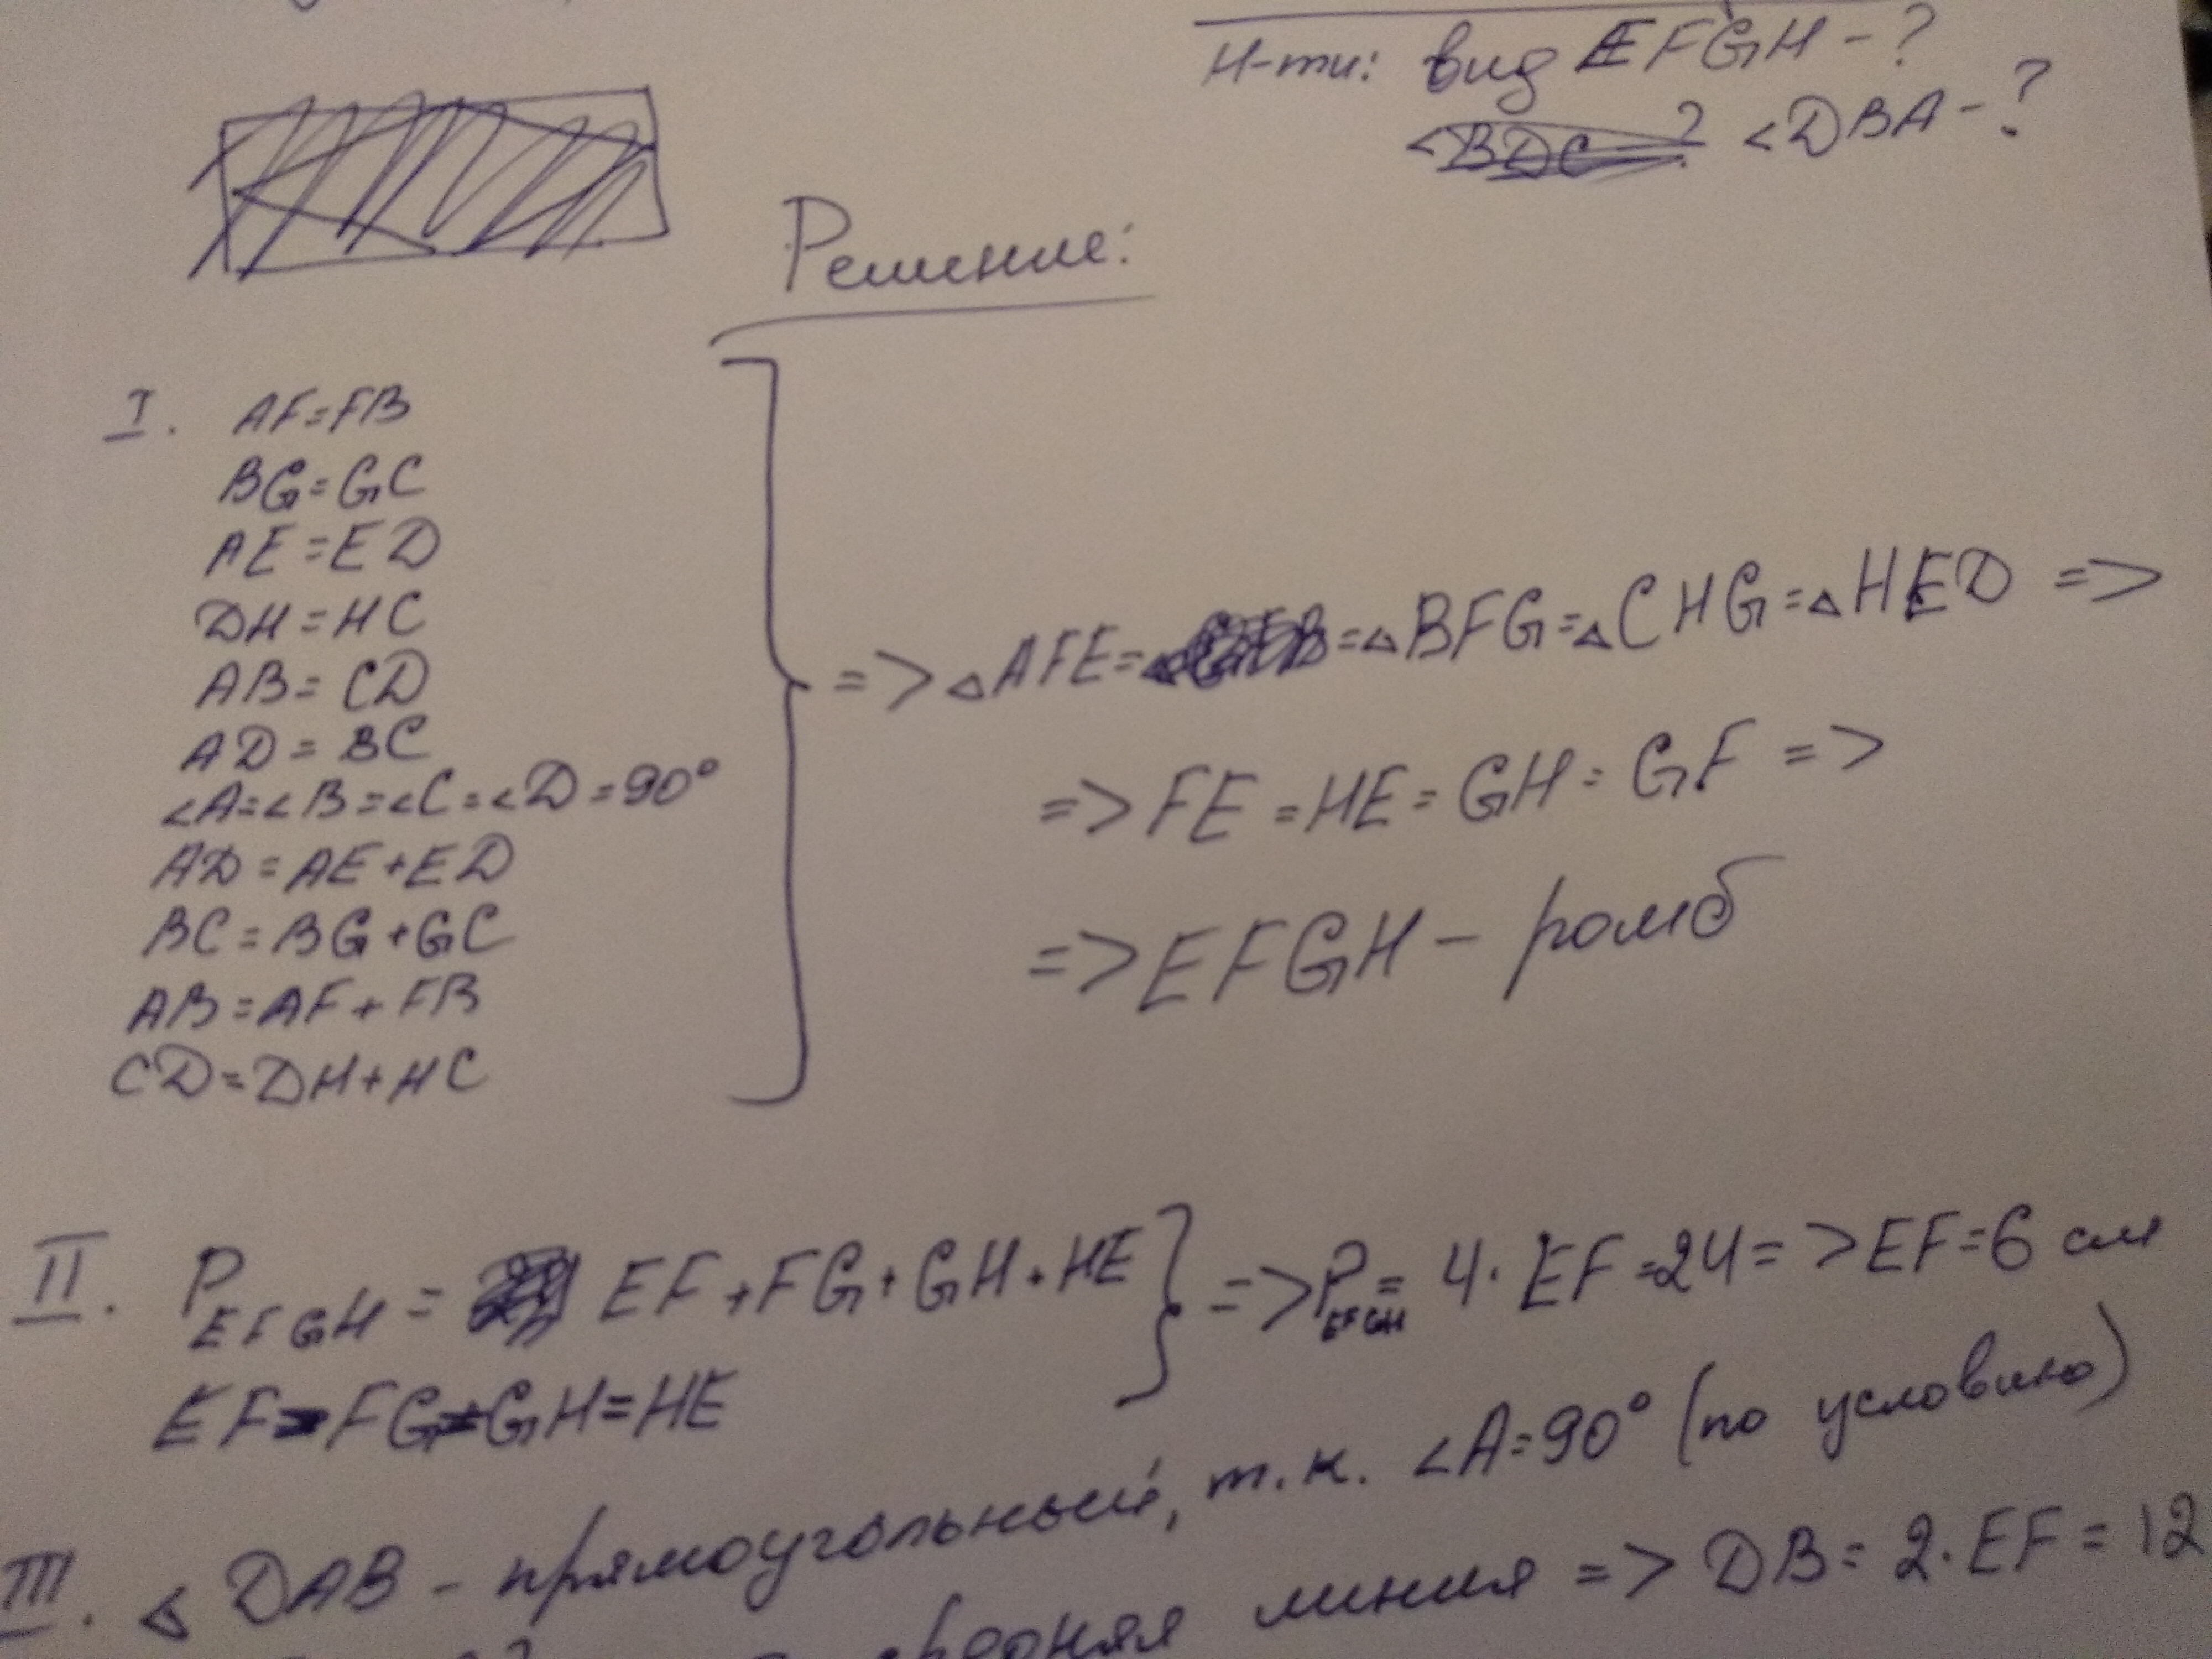 Н-ти: вид EFGH - ?
<DBA - ?
Решение:
I. AF=FB
BG=GC
AE=ED
DH=HC
AB=CD
AD=BC
<A=<B=<C=<D=90°
AD=AE+ED
BC=BG+GC
AB=AF+FB
CD=DH+HC
=> △AFE= =△BFG=△CHG=△HED =>
=> FE=HE=GH=GF =>
=> EFGH - ромб
II. P EFGH = EF+FG+GH+HE
EF=FG=GH=HE
=> P EFGH = 4·EF=24 => EF=6 см
III. △DAB - прямоугольный, т.к. <A=90° (по условию)
средняя линия => DB=2·EF=12